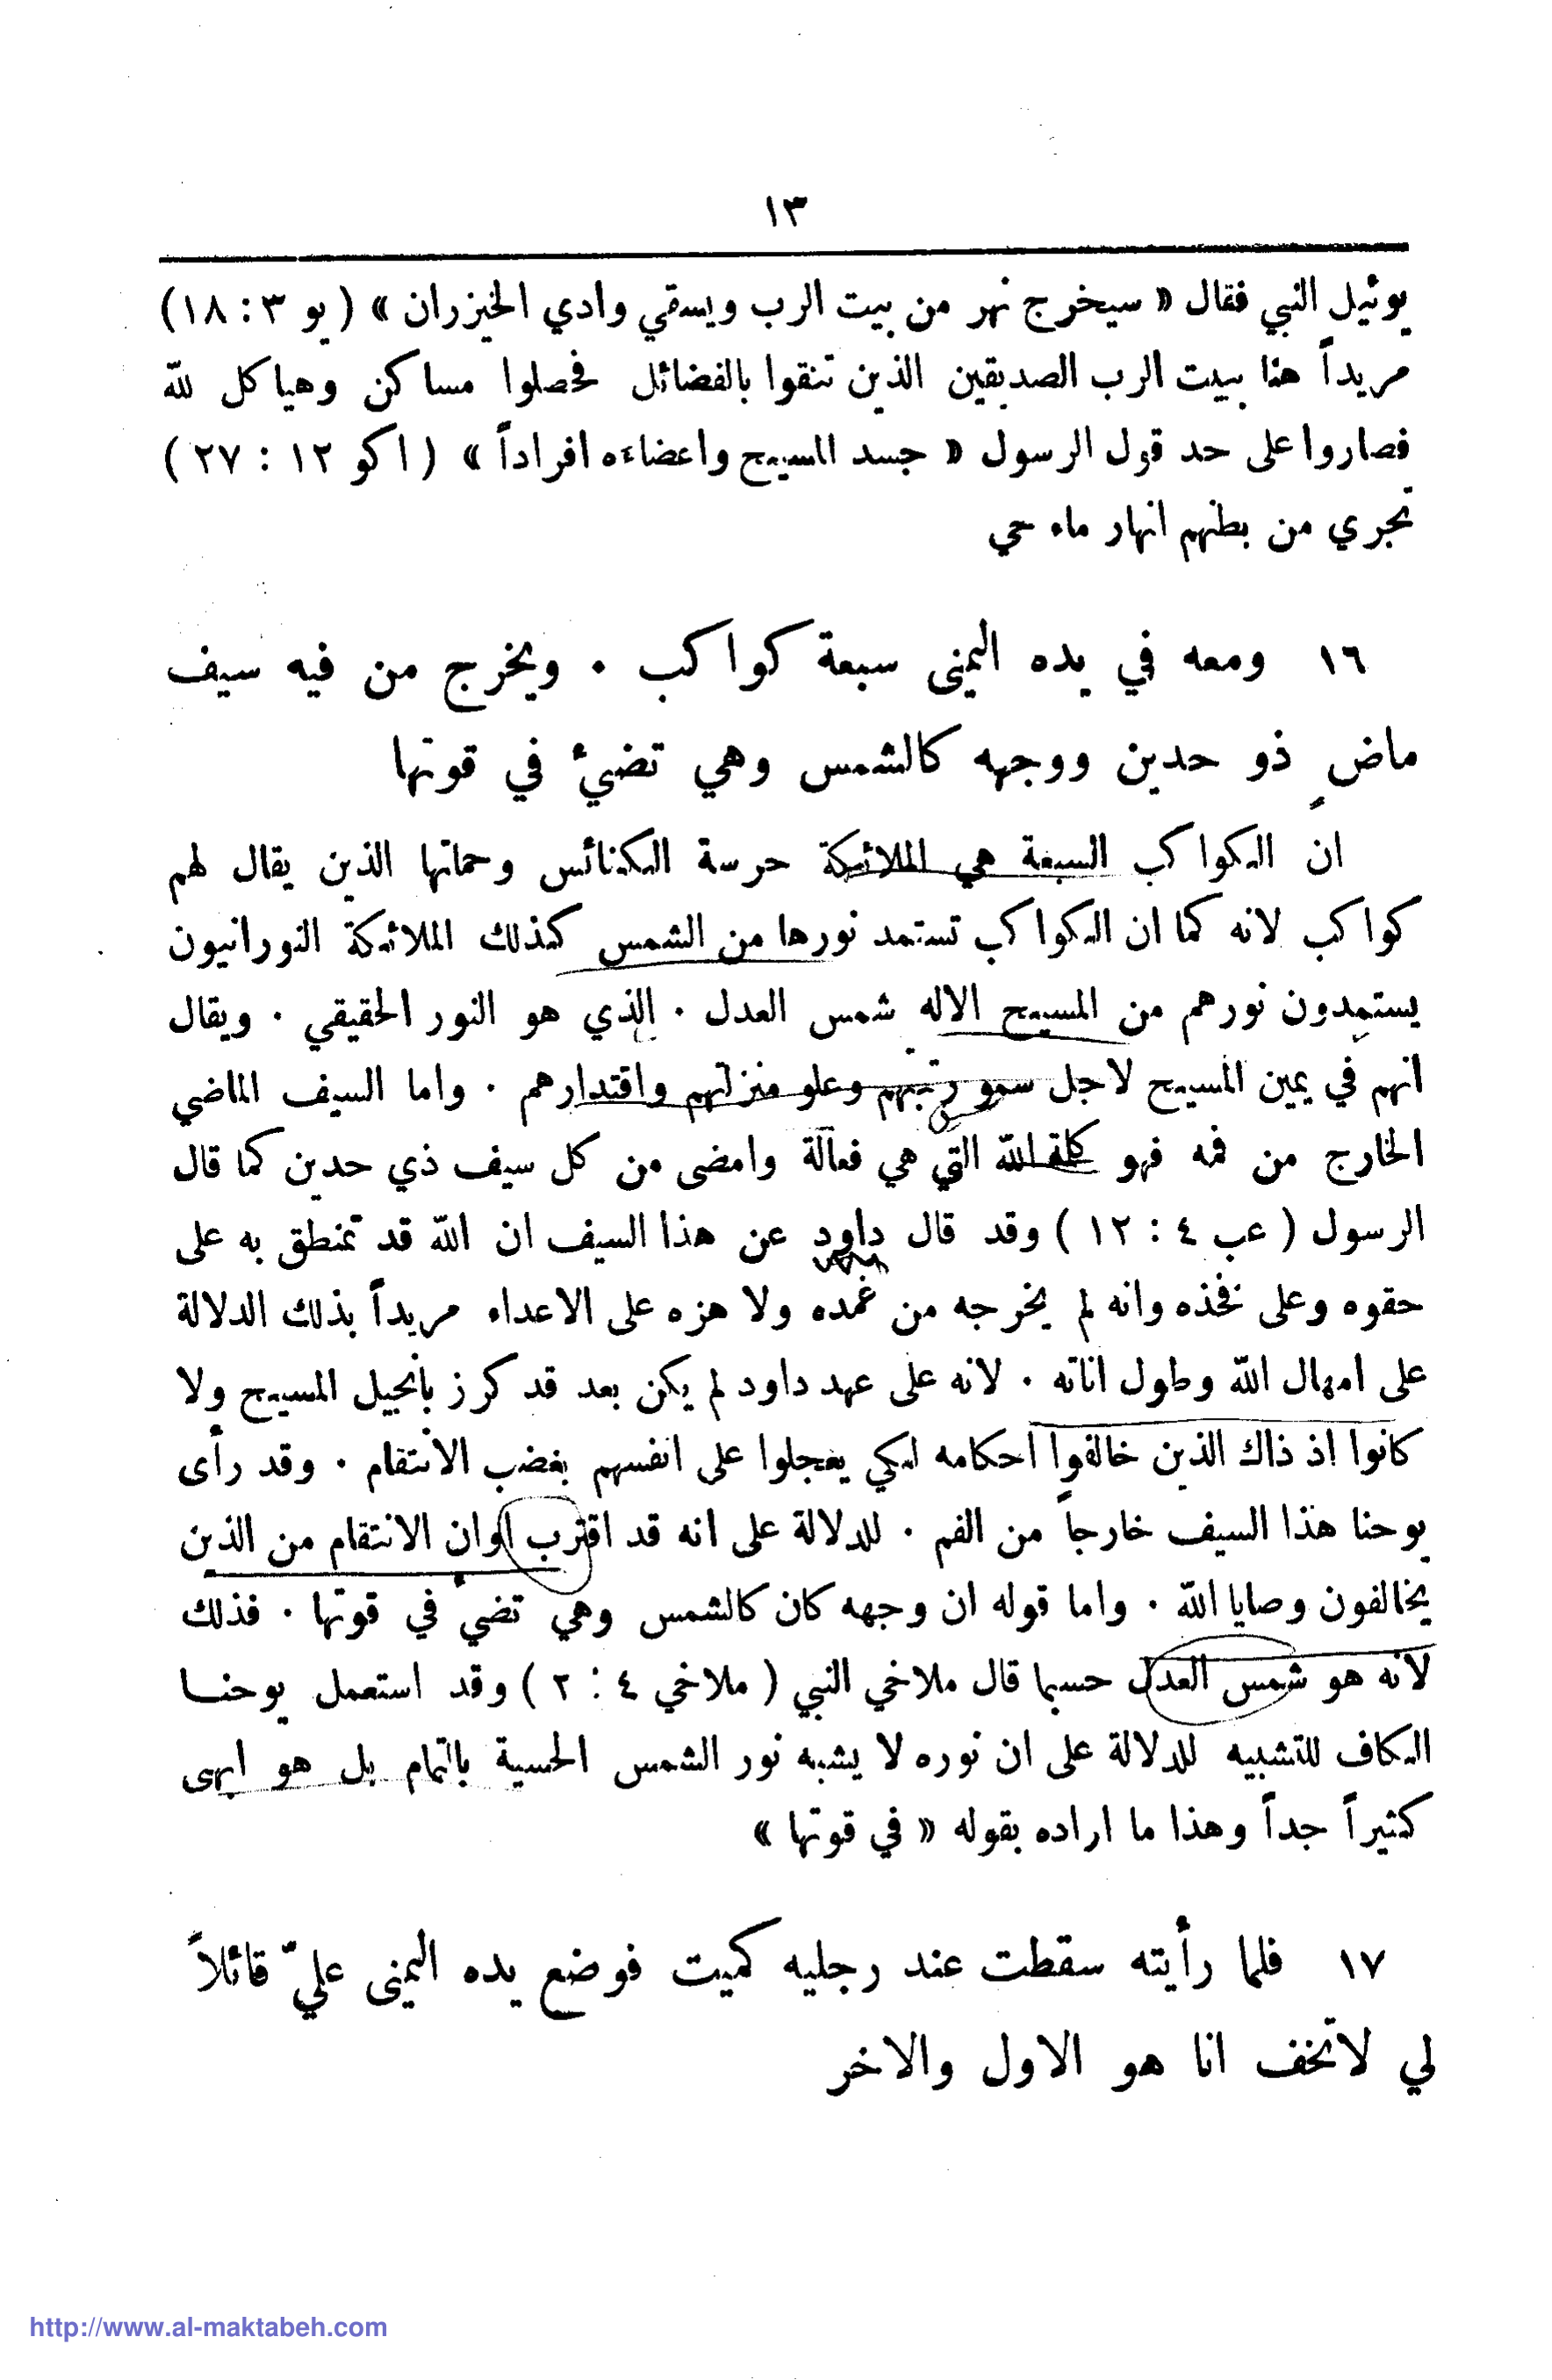 ١٣
يوئيل النبي فقال « سيخرج نهر من بيت الرب ويسقي وادي الخيزران » ( يو ٣ : ١٨ )
مريداً هنا ببيت الرب الصديقين الذين تنقوا بالفضائل فحصلوا مساكن وهياكل لله
فصاروا على حد قول الرسول « جسد المسيح واعضاءه افراداً » ( ١ كو ١٢ : ٢٧ )
تجري من بطنهم انهار ماء حي
١٦ ومعه في يده اليمنى سبعة كواكب . ويخرج من فيه سيف
ماضٍ ذو حدين ووجهه كالشمس وهي تضيءُ في قوتها
ان الكواكب السبعة هي الملائكة حرسة الكنائس وحماتها الذين يقال لهم
كواكب لانه كما ان الكواكب تستمد نورها من الشمس كذلك الملائكة النورانيون
يستمدون نورهم من المسيح الاله شمس العدل . الذي هو النور الحقيقي . ويقال
انهم في يمين المسيح لاجل سمو رتبهم وعلو منزلتهم واقتدارهم . واما السيف الماضي
الخارج من فمه فهو كلمة الله التي هي فعالة وامضى من كل سيف ذي حدين كما قال
الرسول ( عب ٤ : ١٢ ) وقد قال داود عن هذا السيف ان الله قد تمنطق به على
حقوه وعلى فخذه وانه لم يخرجه من غمده ولا هزه على الاعداء مريداً بذلك الدلالة
على امهال الله وطول اناته . لانه على عهد داود لم يكن بعد قد كرز بانجيل المسيح ولا
كانوا اذ ذاك الذين خالفوا احكامه لكي يعجلوا على انفسهم بغضب الانتقام . وقد رأى
يوحنا هذا السيف خارجاً من الفم . للدلالة على انه قد اقترب اوان الانتقام من الذين
يخالفون وصايا الله . واما قوله ان وجهه كان كالشمس وهي تضيءُ في قوتها . فذلك
لانه هو شمس العدل حسبما قال ملاخي النبي ( ملاخي ٤ : ٢ ) وقد استعمل يوحنا
الكاف للتشبيه للدلالة على ان نوره لا يشبه نور الشمس الحسية بالتمام بل هو ابهى
كثيراً جداً وهذا ما اراده بقوله « في قوتها »
١٧ فلما رأيته سقطت عند رجليه كميت فوضع يده اليمنى عليّ قائلاً
لي لا تخف انا هو الاول والاخر
http://www.al-maktabeh.com